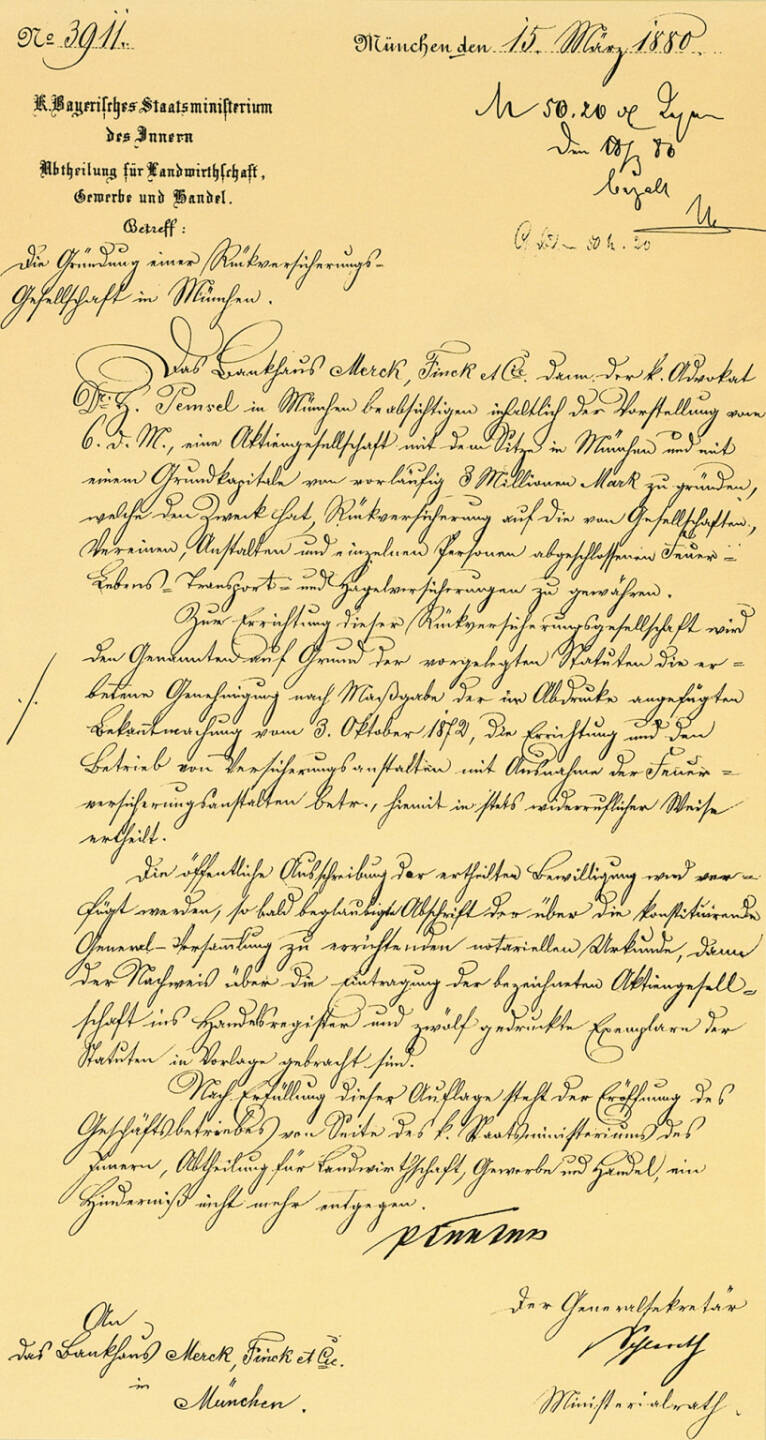 No 3911.
München den 15. März 1880.
K. Bayerisches Staatsministerium
des Innern
Abtheilung für Landwirthschaft,
Gewerbe und Handel.
Betreff:
Die Gründung einer Rückversicherungs-
Gesellschaft in München.
M 50.20
den 80
bezalt
Das Bankhaus Merck, Finck et Cie. dann der k. Advokat
Dr. H. Pemsel in München beabsichtigen inhaltlich der Vorstellung vom
6. d. M., eine Aktiengesellschaft mit dem Sitze in München und mit
einem Grundkapitale von vorläufig 3 Millionen Mark zu gründen,
welche den Zweck hat, Rückversicherung auf die von Gesellschaften,
Vereinen, Anstalten und einzelnen Personen abgeschlossenen Feuer-
Lebens- Transport- und Hagelversicherungen zu gewähren.
Zur Errichtung dieser Rückversicherungsgesellschaft wird
den Genannten auf Grund der vorgelegten Statuten die er-
betene Genehmigung nach Maßgabe der im Abdrucke angefügten
Bekanntmachung vom 3. Oktober 1872, die Errichtung und den
Betrieb von Versicherungsanstalten mit Ausnahme der Feuer-
versicherungsanstalten betr., hiemit in stets widerruflicher Weise
ertheilt.
Die öffentliche Ausschreibung der ertheilten Bewilligung wird ver-
fügt werden, so bald beglaubigte Abschrift der über die konstituirende
General-Versammlung zu errichtenden notariellen Urkunde, dann
der Nachweis über die Eintragung der bezeichneten Aktiengesell-
schaft ins Handelsregister und zwölf gedruckte Exemplare der
Statuten in Vorlage gebracht sind.
Nach Erfüllung dieser Auflage steht der Eröffnung des
Geschäftsbetriebes von Seite des k. Staatsministeriums des
Innern, Abtheilung für Landwirthschaft, Gewerbe und Handel, ein
Hinderniß nicht mehr entgegen.
Der Generalsekretär
An
das Bankhaus Merck, Finck et Cie.
in
München.
Ministerialrath.